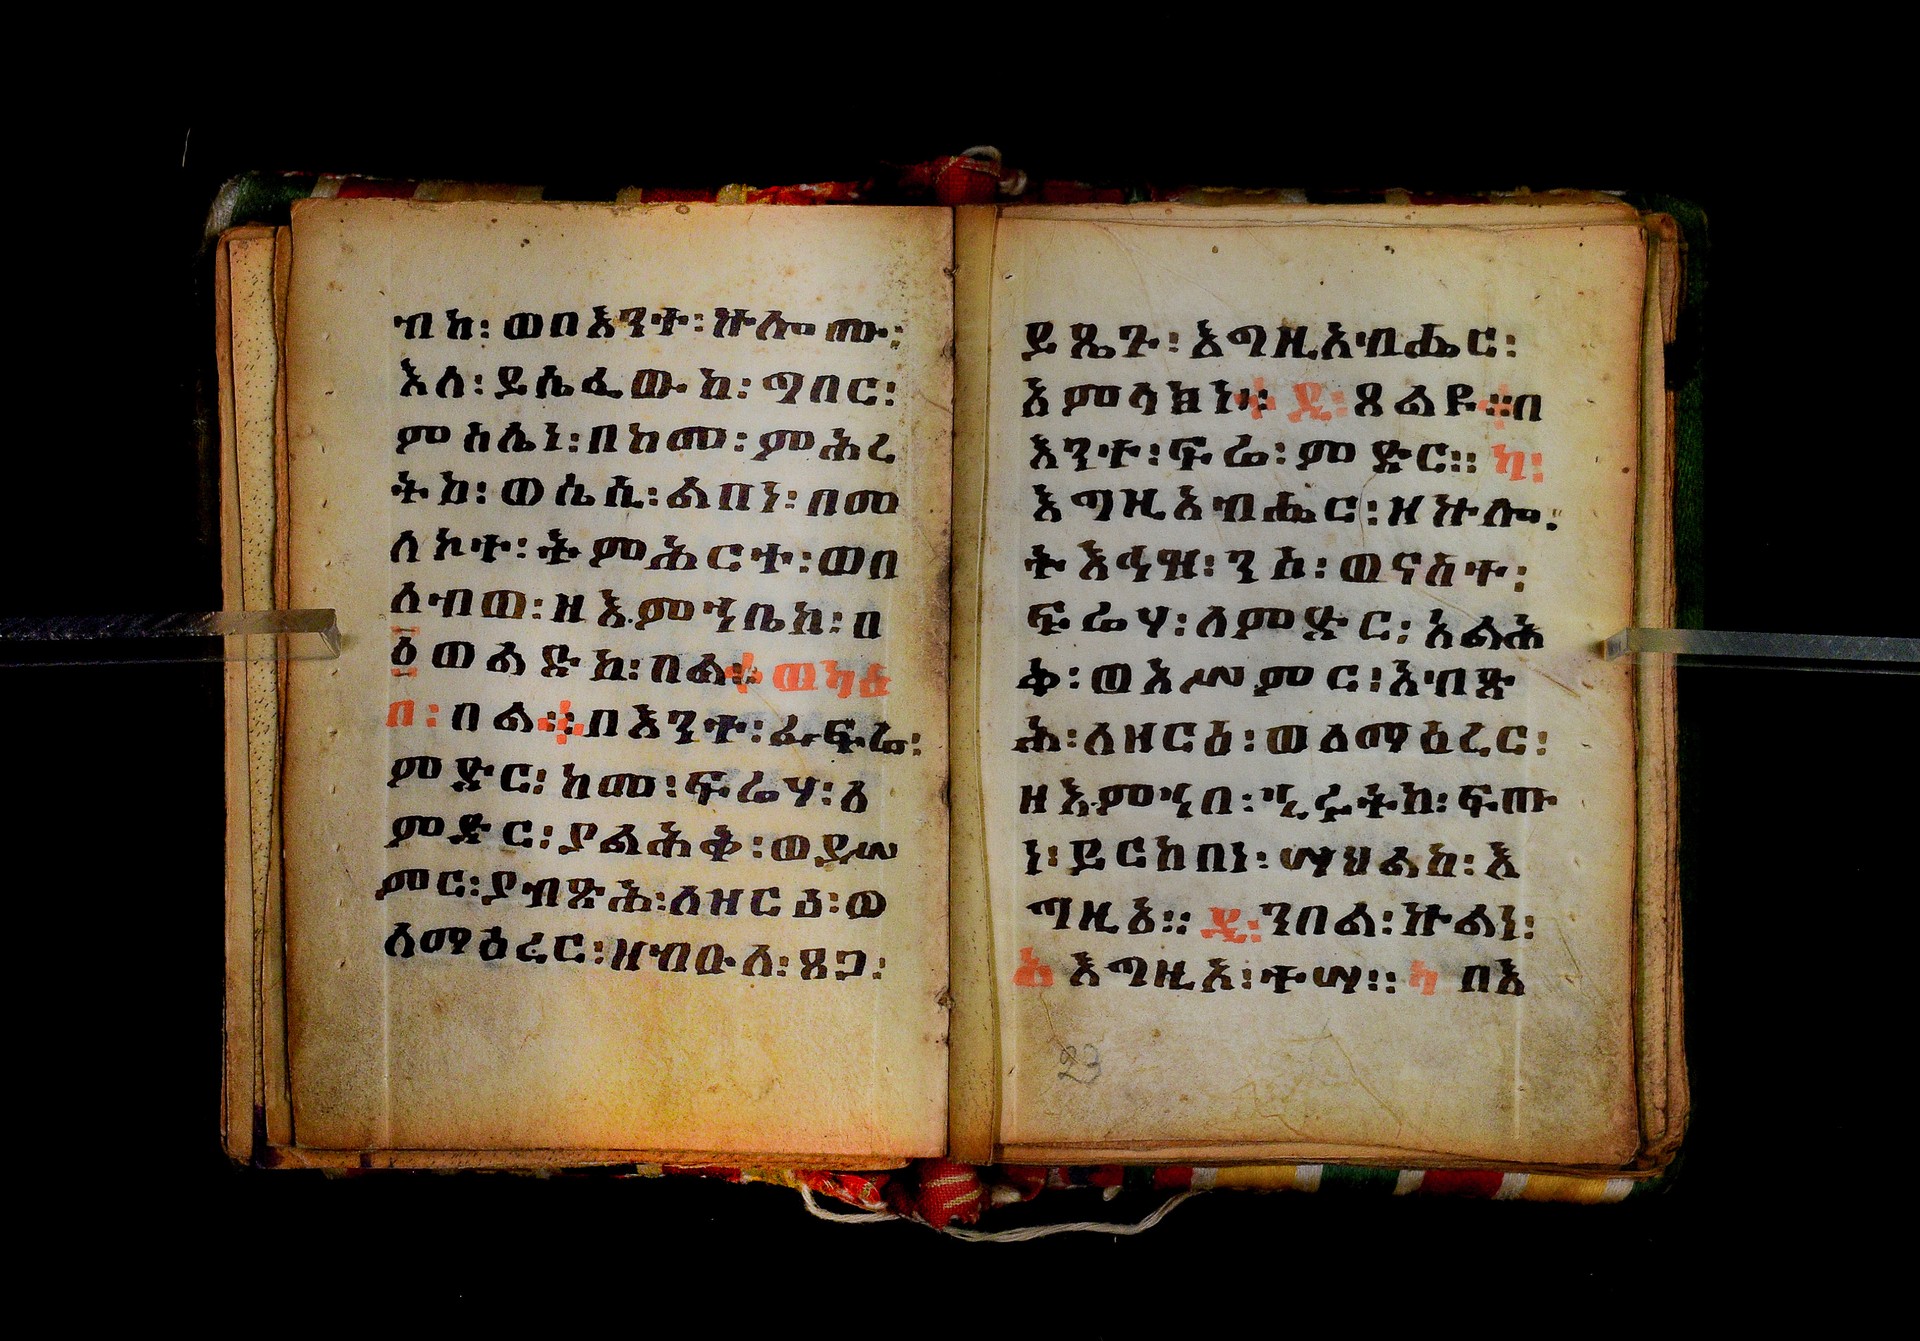 ብከ፡ ወበእንተ፡ ኵሎሙ፡
እለ፡ ይሴፈውከ፡ ግበር፡
ምስሌነ፡ በከመ፡ ምሕረ
ትከ፡ ወሴሲ፡ ልበነ፡ በመ
ለኮተ፡ ትምሕርተ፡ ወበ
ለብወ፡ ዘእምኀቤከ፡ በ
፩ወልድከ፡ በል፨ ወካዕ
በ፡ በል፨ በእንተ፡ ፈፍሬ፡
ምድር፡ ከመ፡ ፍሬሃ፡ ለ
ምድር፡ ያልሕቅ፡ ወያሠ
ምር፡ ያብጽሕ፡ ለዝርእ፡ ወ
ለማዕረር፡ ዘብቡለ፡ ጸጋ፡
ይጼጉ፡ እግዚእብሔር፡
እምላክነ፨ ዲ፡ ጸልዩ፨ በ
እንተ፡ ፍሬ፡ ምድር። ካ፡
እግዚእብሔር፡ ዘኵሎ፡
ትእኅዝ፡ ንስ፡ ወናስተ፡
ፍሬሃ፡ ለምድር፡ አልሕ
ቅ፡ ወእሠምር፡ እብጽ
ሕ፡ ለዘርዕ፡ ወለማዕረር፡
ዘእምኀበ፡ ኂሩትከ፡ ፍጡ
ነ፡ ይርከበነ፡ ሣህልከ፡ እ
ግዚእ። ዲ፡ ንበል፡ ኵልነ፡
ሕ እግዚእ፡ ተሣ። ካ በእ
23